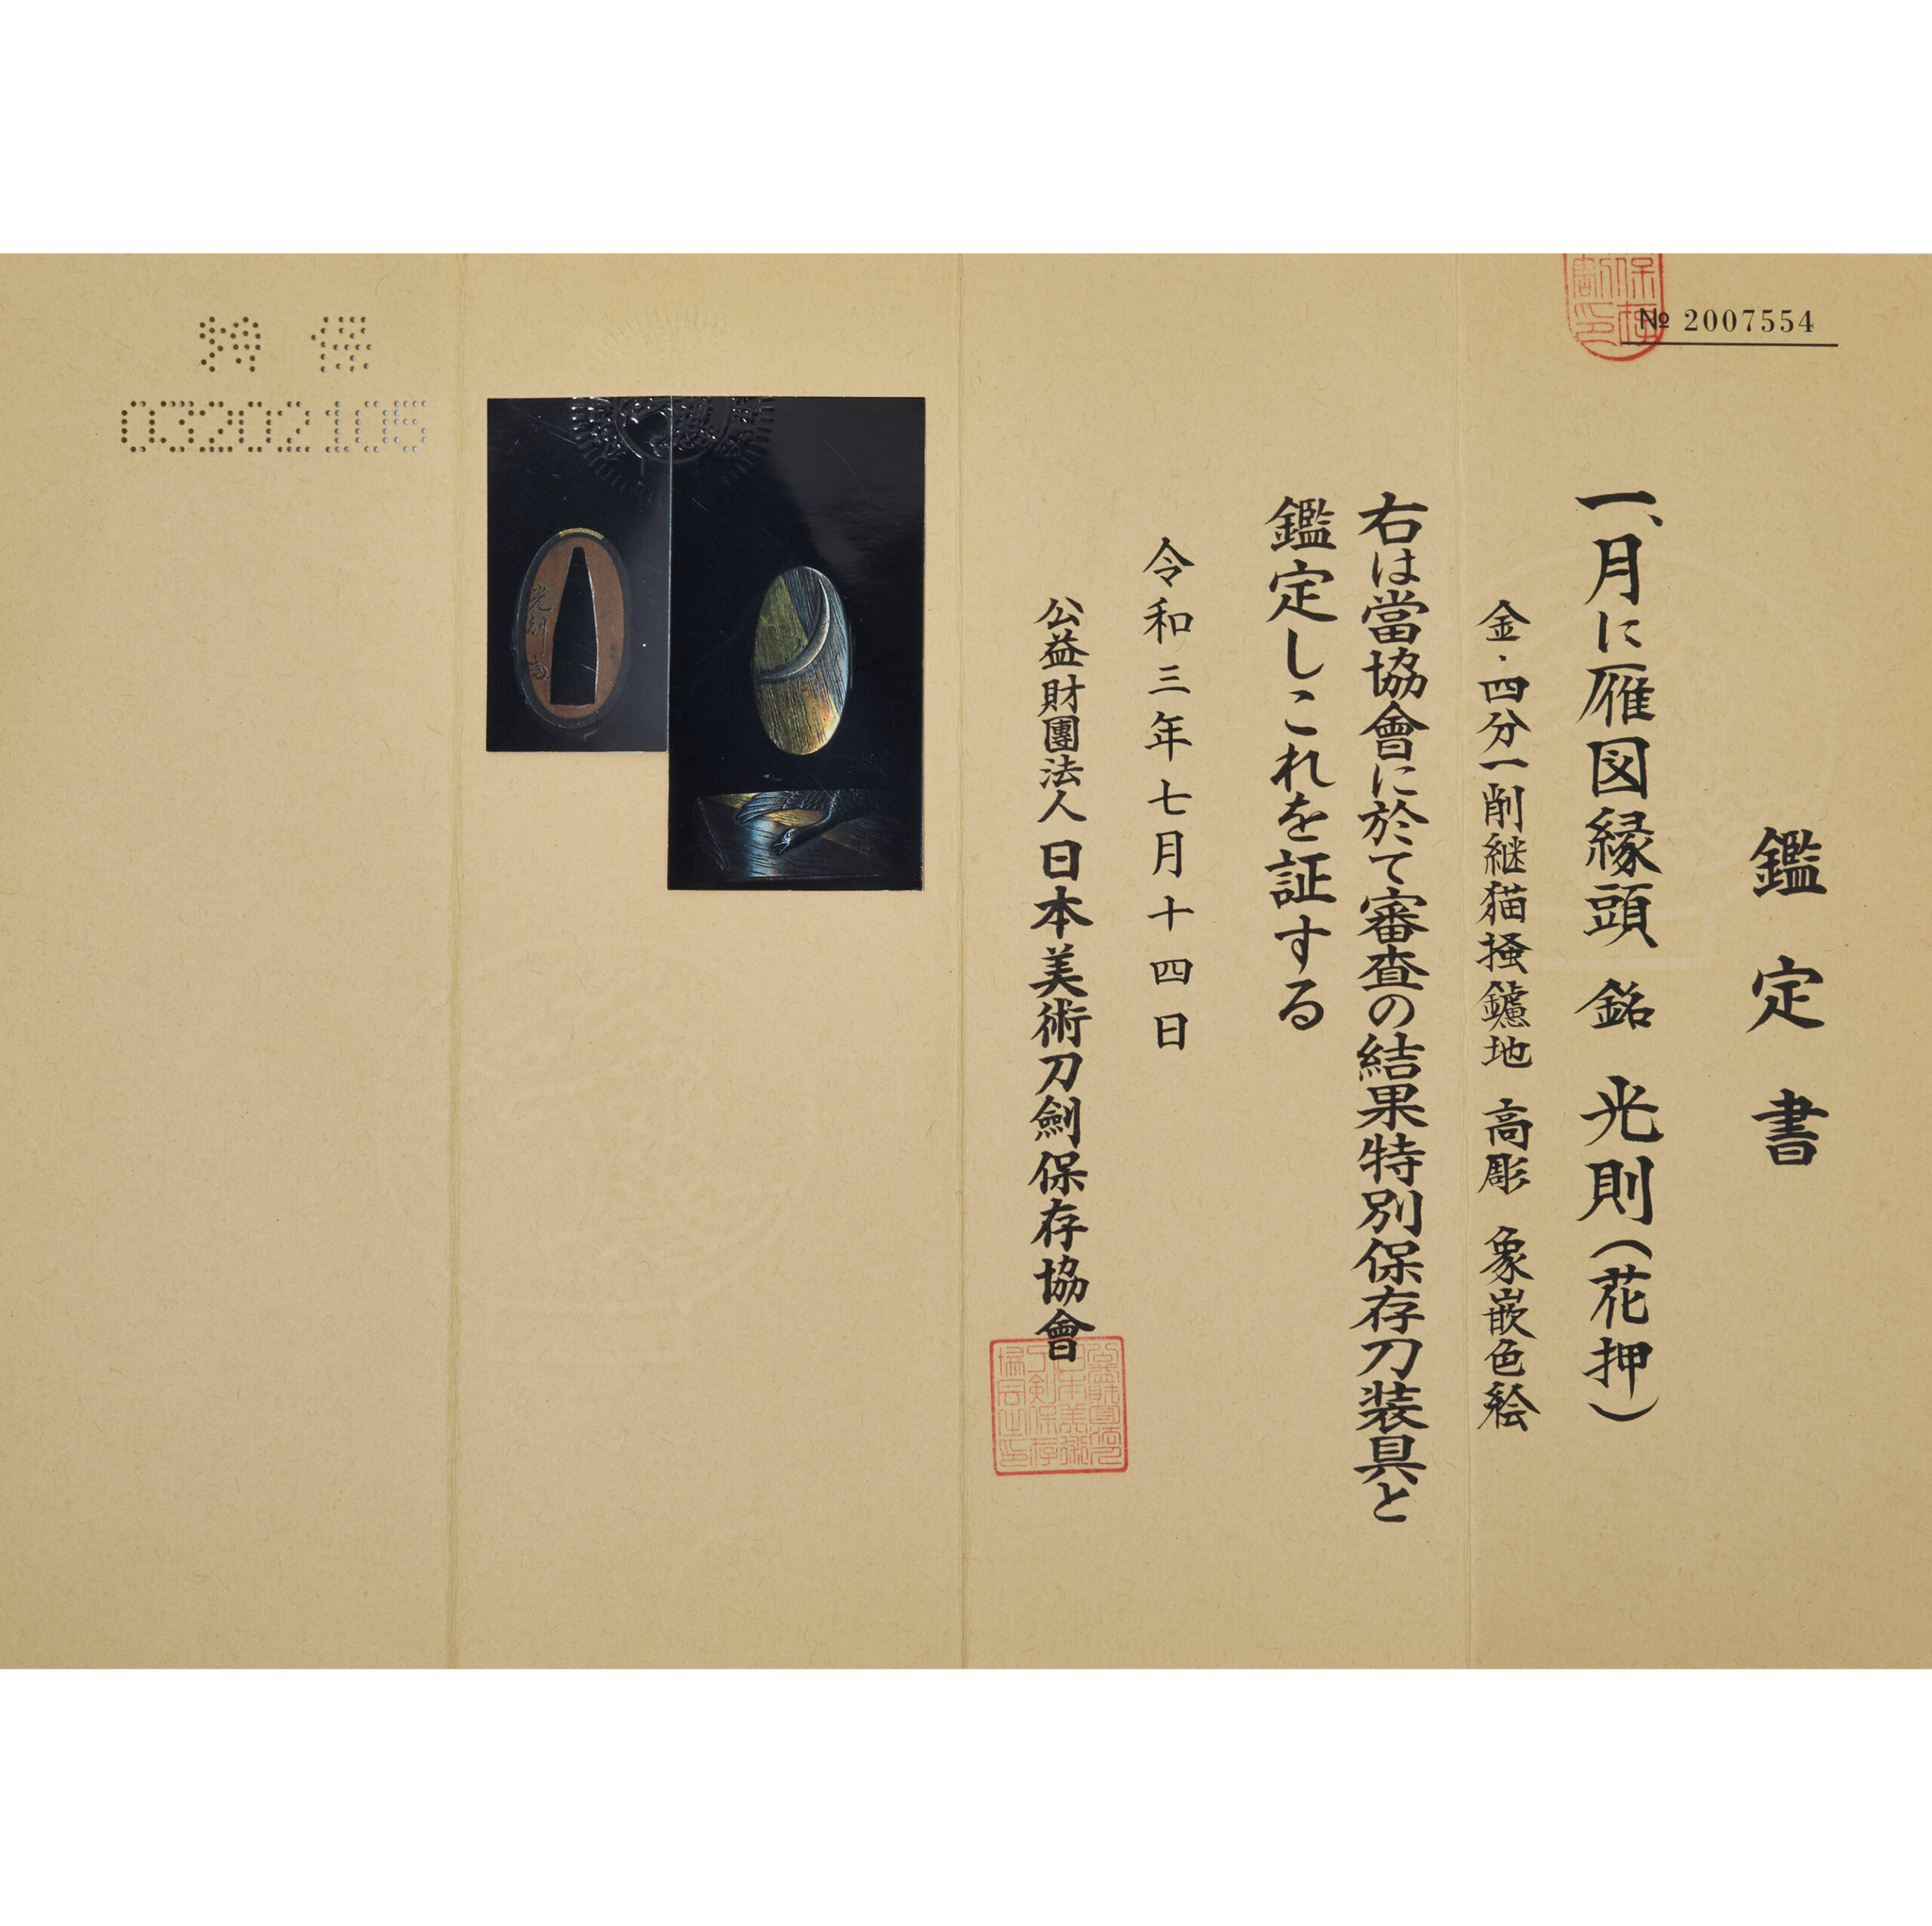 № 2007554
鑑定書
一、月に雁図縁頭 銘 光則（花押）
金・四分一削継猫掻鑢地 高彫 象嵌色絵
右は當協會に於て審査の結果特別保存刀装具と
鑑定しこれを証する
令和三年七月十四日
公益財團法人 日本美術刀劍保存協會
特 保
03202105
光則